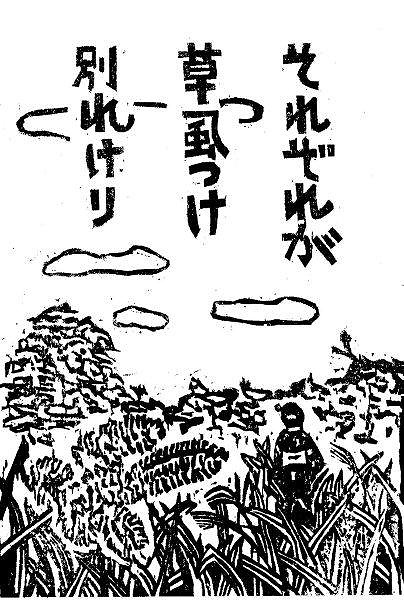 それぞれが
草虱つけ
別れけり